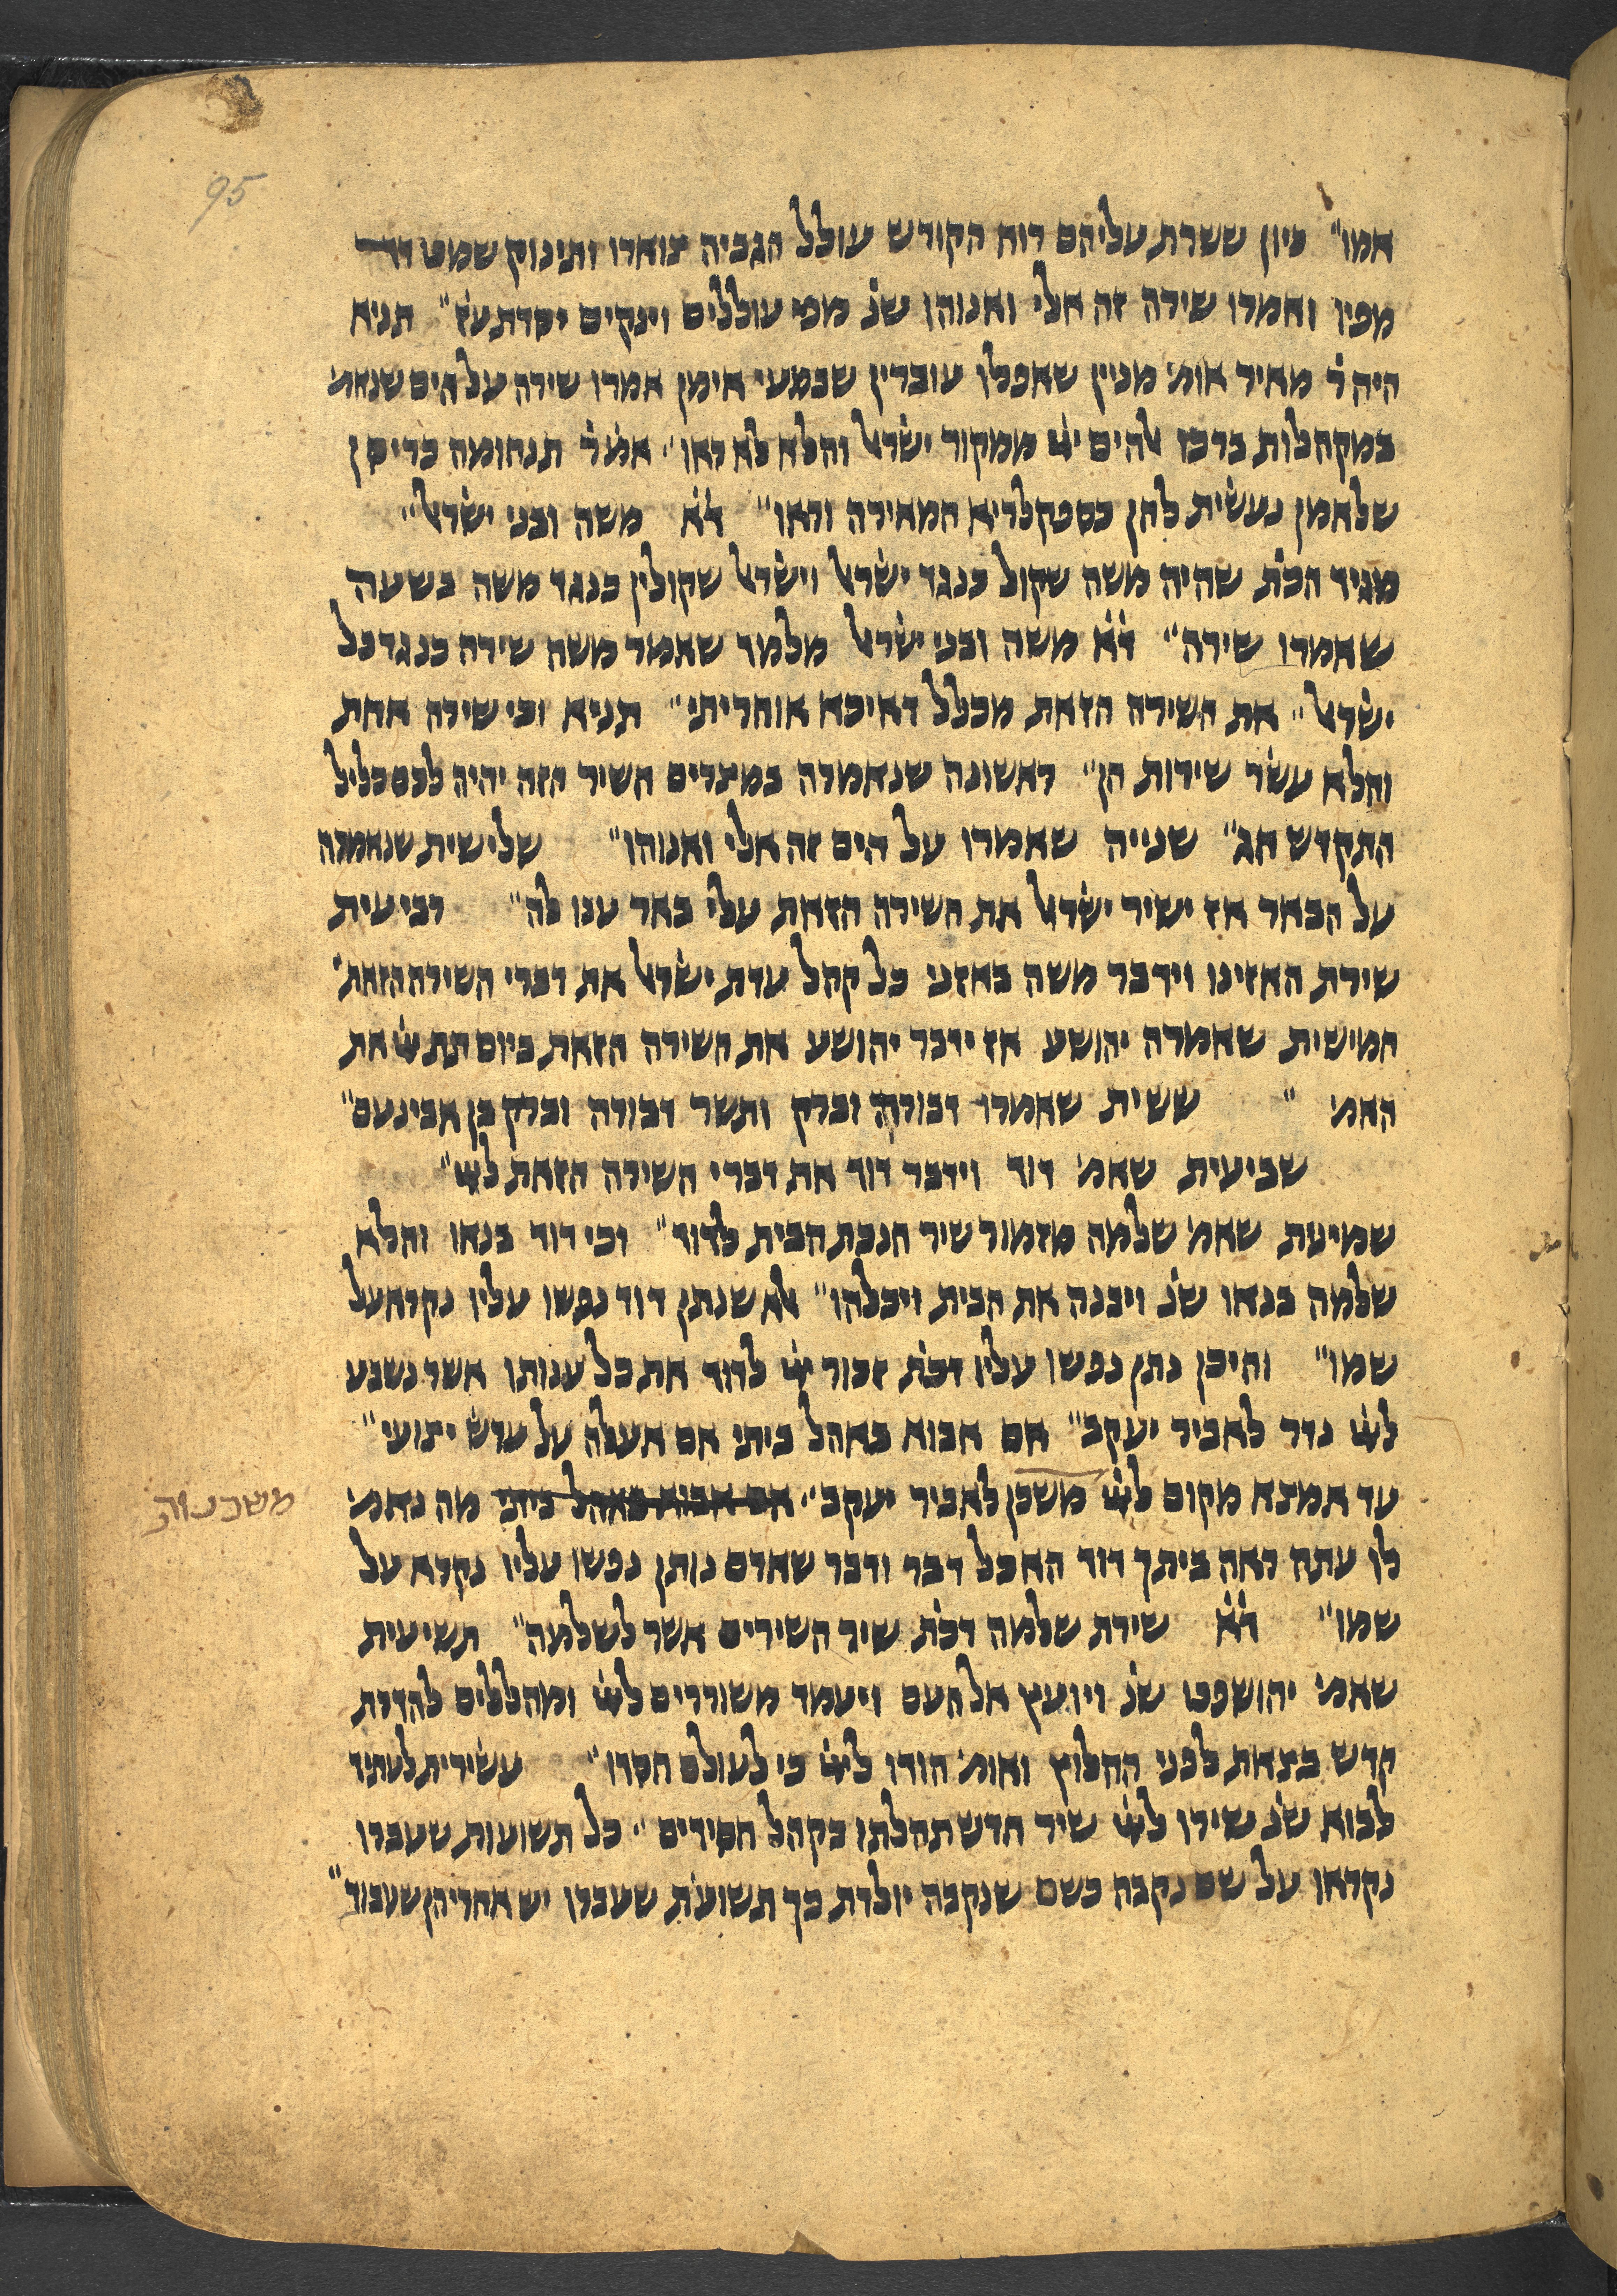 95
אמו" כיון ששרת עליהם רוח הקודש עולל הגביה צוארו ותינוק שמט דד
מפיו ואמרו שירה זה אלי ואנוהו שנ̇ מפי עוללים וינקים יסדת עז" תניא
היה ר̇ מאיר אומ׳ מניין שאפלו עוברין שבמעי אימן אמרו שירה על הים שנאמ׳
במקהלות ברכו אלהים יי̇ ממקור ישראל והלא לא ראו" אמ̇ר̇ תנחומה כריסן
שלאמן נעשית להן כספקלריא המאירה וראו" ד̇א̇ משה ובני ישראל"
מגיד הכת̇ שהיה משה שקול כנגד ישראל וישראל שקולין כנגד משה בשעה
שאמרו שירה" ד̇א̇ משה ובני ישראל מלמד שאמר משה שירה כנגד כל
ישראל" את השירה הזאת מכלל דאיכא אוחריתי" תניא וכי שירה אחת
והלא עשר שירות הן" ראשונה שנאמרה במצרים השיר הזה יהיה לכם כליל
התקדש חג" שנייה שאמרו על הים זה אלי ואנוהו" שלישית שנאמרה
על הבאר אז ישיר ישראל את השירה הזאת עלי באר ענו לה" רביעית
שירת האזינו וידבר משה באזני כל קהל עדת ישראל את דברי השירה הזאת׳
חמישית שאמרה יהושע אז ידבר יהושע את השירה הזאת ביום תת יי̇ את
האמ׳ " ששית שאמרו דבורה וברק ותשר דבורה וברק בן אבינעם"
שביעית שאמ׳ דוד וידבר דוד את דברי השירה הזאת ליי̇"
שמיעת שאמ׳ שלמה מזמור שיר חנכת הבית לדוד" וכי דוד בנאו והלא
שלמה בנאו שנ̇ ויבנה את הבית ויכלהו" אלא שנתן דוד נפשו עליו נקרא על
שמו" והיכן נתן נפשו עליו דכת̇ זכור יי̇ לדוד את כל ענותו אשר נשבע
ליי̇ נדר לאביר יעקב" אם אבוא באהל ביתי אם אעלה על ערש יצועי"
עד אמצא מקום ליי̇ משכן לאביר יעקב" אם אבוא באהל ביתי מה נאמ׳
משכנות
לו עתה ראה ביתך דוד הא כל דבר ודבר שאדם נותן נפשו עליו נקרא על
שמו" ד̇א̇ שירת שלמה דכת̇ שיר השירים אשר לשלמה" תשיעית
שאמ׳ יהושפט שנ̇ ויועץ אל העם ויעמד משוררים ליי̇ ומהללים להדרת
קדש בצאת לפני החלוץ ואומ׳ הודו ליי̇ כי לעולם חסדו" עשירית לעתיד
לבוא שנ̇ שירו ליי̇ שיר חדש תהלתו בקהל חסידים" כל תשועות שעברו
נקראו על שם נקבה כשם שנקבה יולדת כך תשועת שעברו יש אחריהן שעבוד"